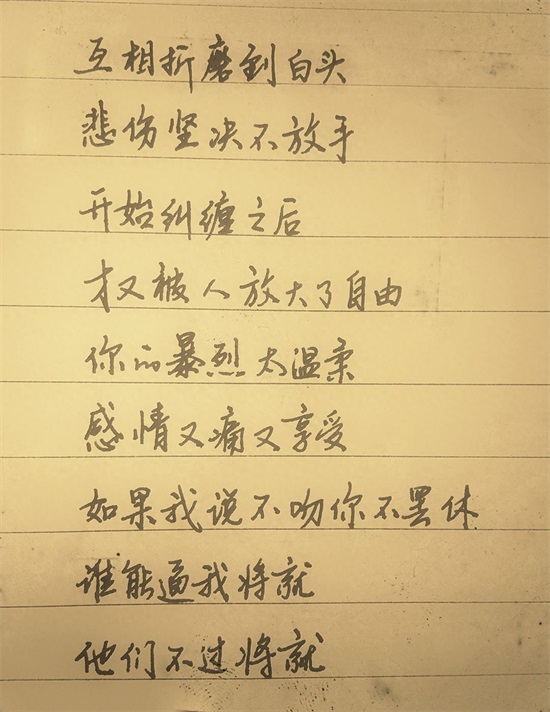 互相折磨到白头
悲伤坚决不放手
开始纠缠之后
才又被人放大了自由
你的暴烈太温柔
感情又痛又享受
如果我说不吻你不罢休
谁能逼我将就
他们不过将就